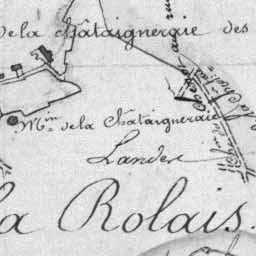 de la châtaigneraie des
M.in de la Châtaigneraie
Landes
la Rolais.